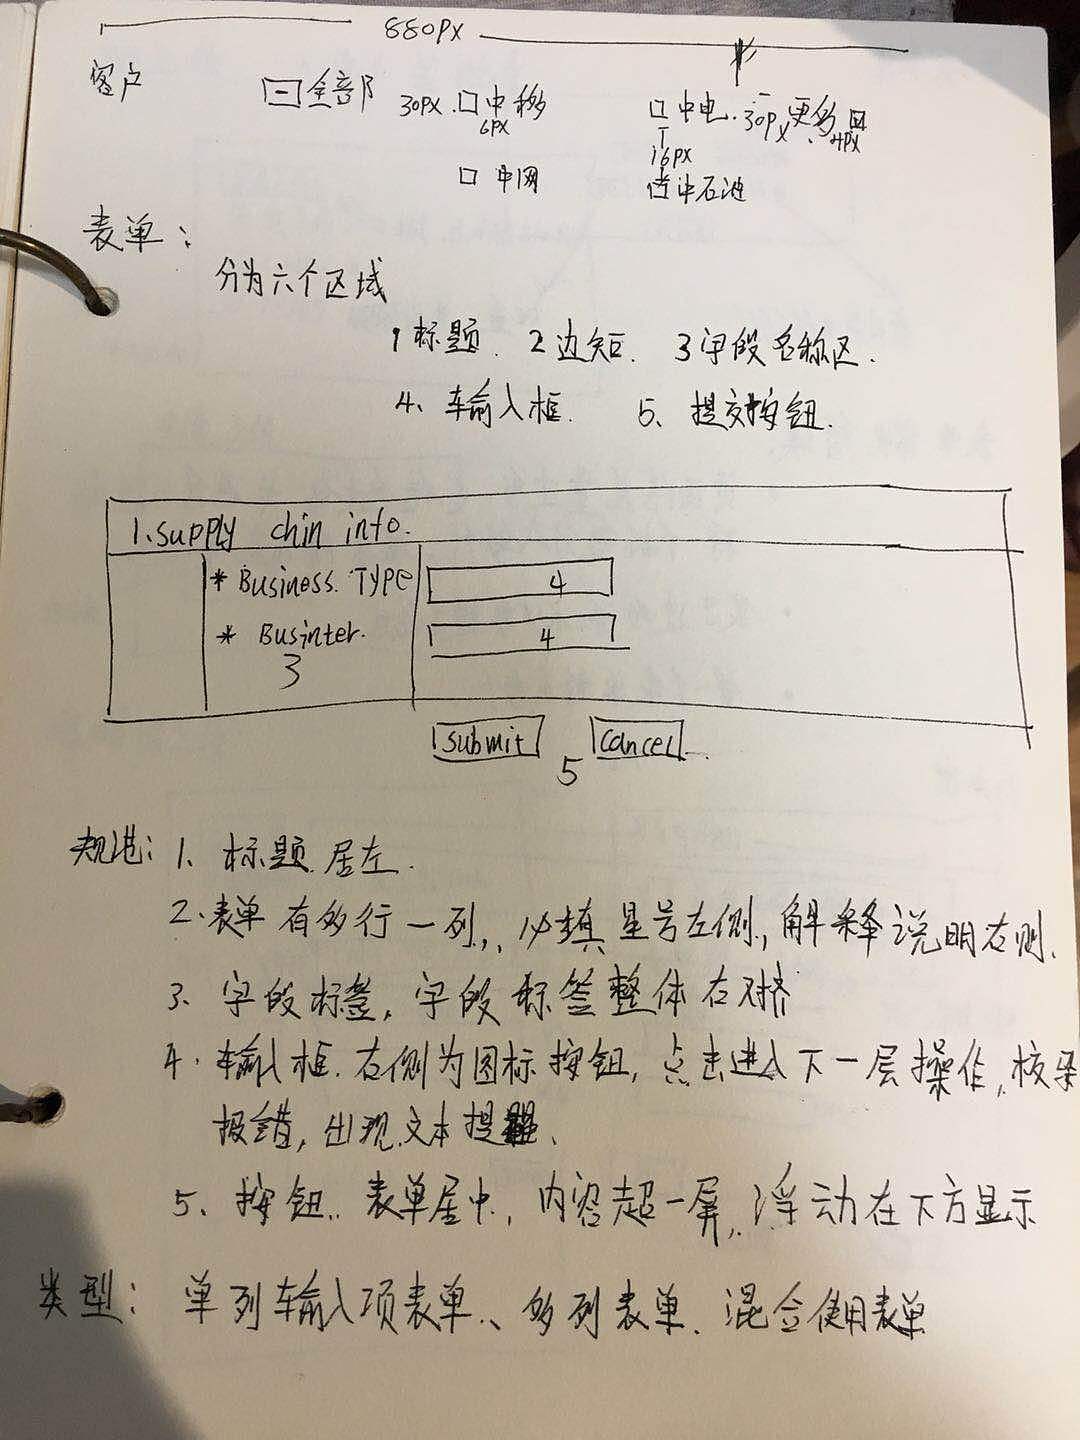 880PX
客户 全部 30PX 中移 中电 30PX 更多
6PX 16PX 4PX
中网 中石油
表单：
分为六个区域
1 标题、 2 边矩、 3 字段名称区.
4、输入框. 5、提交按钮.
1.supply chin info.
* Business. TYPE 4
* Businter. 4
3
submit cancel
5
规范：1、标题居左.
2.表单有多行一列,必填星号左侧,解释说明右侧.
3、字段标签，字段标签整体右对齐
4.输入框.右侧为图标按钮，点击进入下一层操作,
报错，出现文本提醒、
5、按钮..表单居中，内容超一屏,浮动在下方显示
类型：单列输入项表单、多列表单、混合使用表单